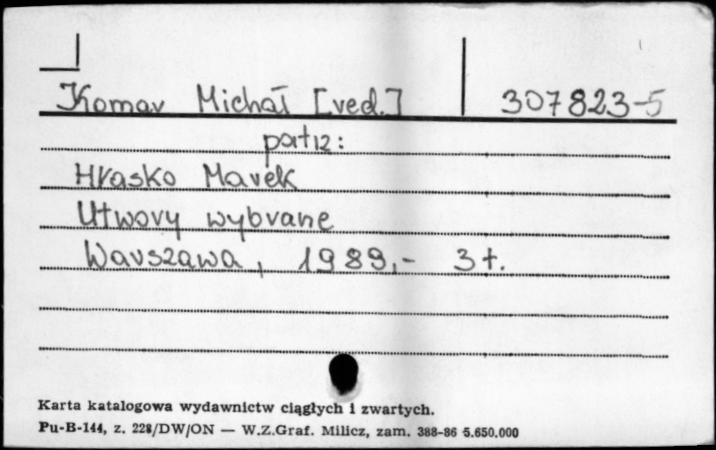 Komar Michał [red.] 307823-5
patrz:
Hłasko Marek
Utwory wybrane
Warszawa, 1989,- 3 t.
Karta katalogowa wydawnictw ciągłych i zwartych.
Pu-B-144, z. 228/DW/ON — W.Z.Graf. Milicz, zam. 388-86 5.650.000